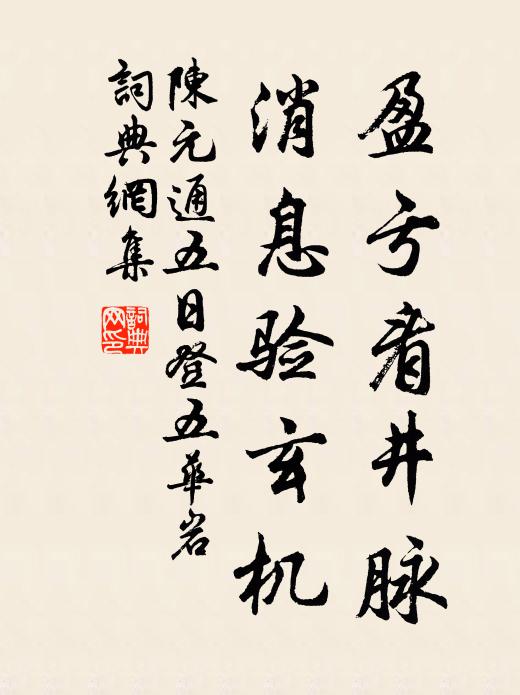 盈亏看井脉
消息验玄机
陳元通五日登五華岩
詞典網集
詞典网印